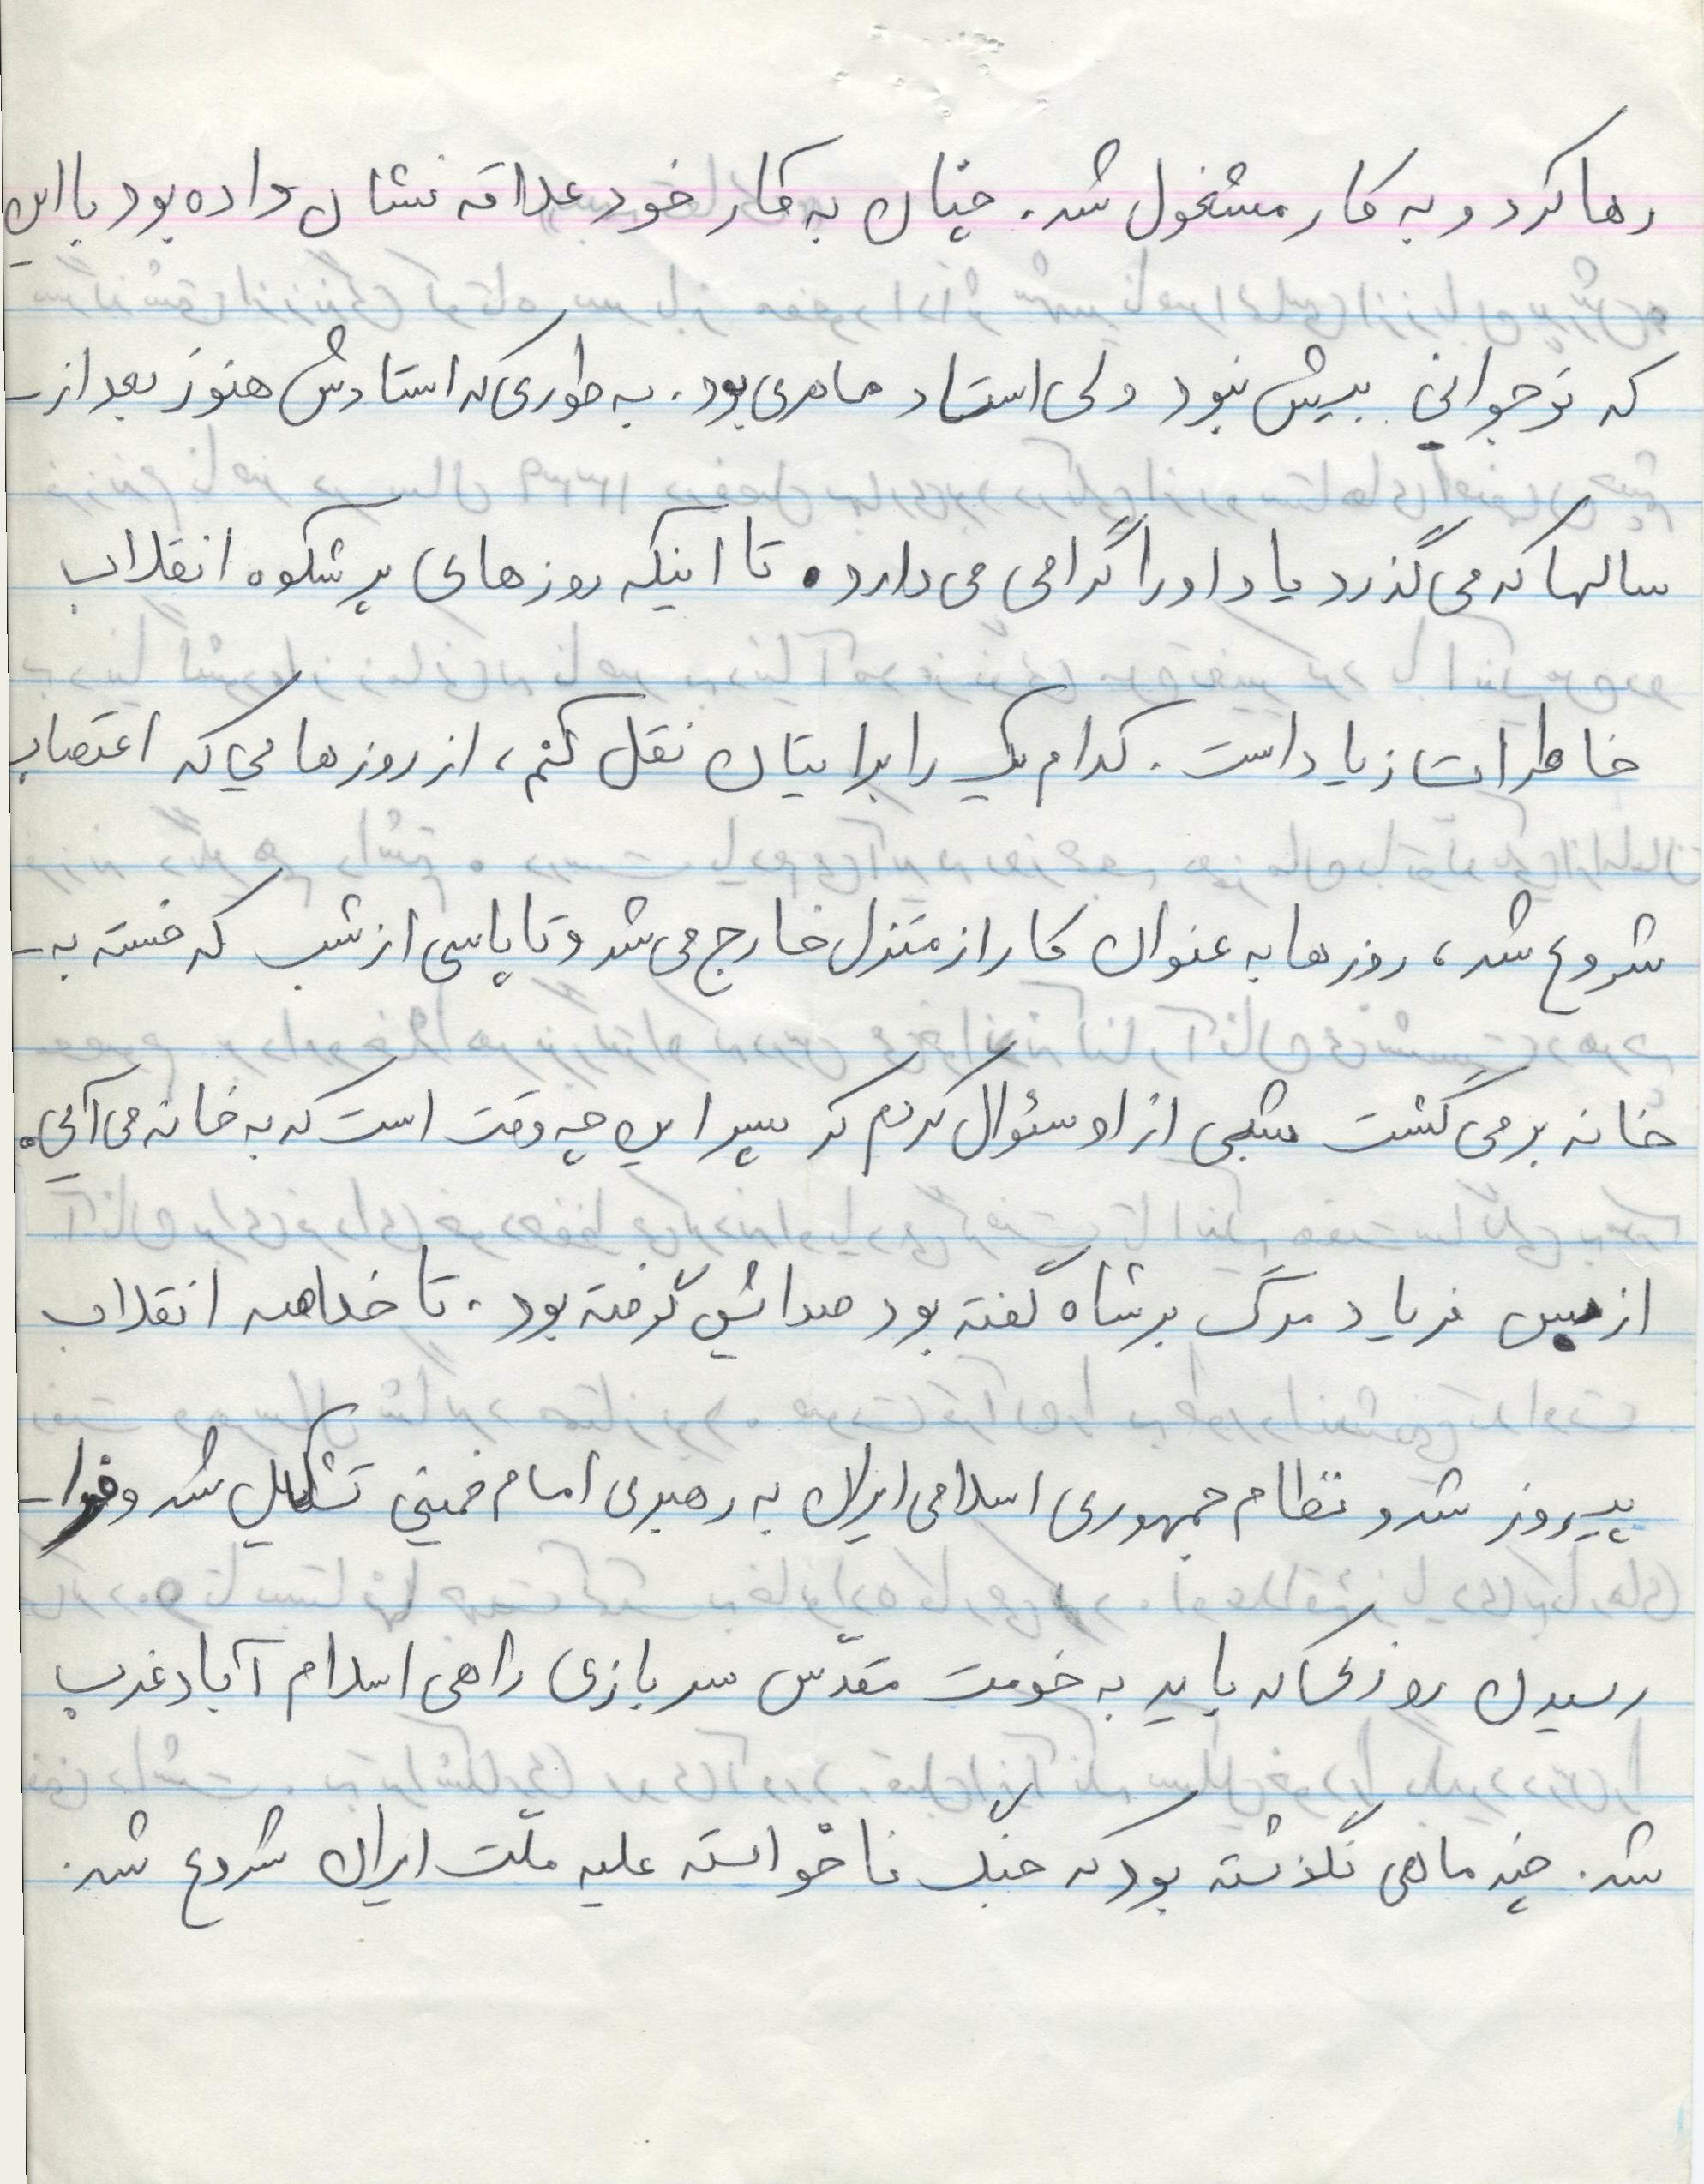 رها کرد و به کار مشغول شد. چنان به کار خود علاقه نشان داده بود با این
که نوجوانی بیش نبود ولی استاد ماهری بود. به طوری که استادش هنوز بعد از ـ
سالها که می گذرد یاد او را گرامی می دارد. تا اینکه روزهای پر شکوه انقلاب
خاطرات زیاد است. کدام یک را برایتان نقل کنم، از روزهایی که اعتصاب
شروع شد، روزها به عنوان کار از منزل خارج می شد و تا پاسی از شب که خسته به ـ
خانه بر می گشت شبی از او سئوال کردم که پسر این چه وقت است که به خانه می آیی.
از بس فریاد مرگ بر شاه گفته بود صدائش گرفته بود. تا خلاصه انقلاب
پیروز شد و نظام جمهوری اسلامی ایران به رهبری امام خمینی تشکیل شد و فرا ـ
رسیدن روزی که باید به خدمت مقدّس سربازی راهی اسلام آباد غرب
شد. چند ماهی نگذشته بود که جنگ ناخواسته علیه ملّت ایران شروع شد.